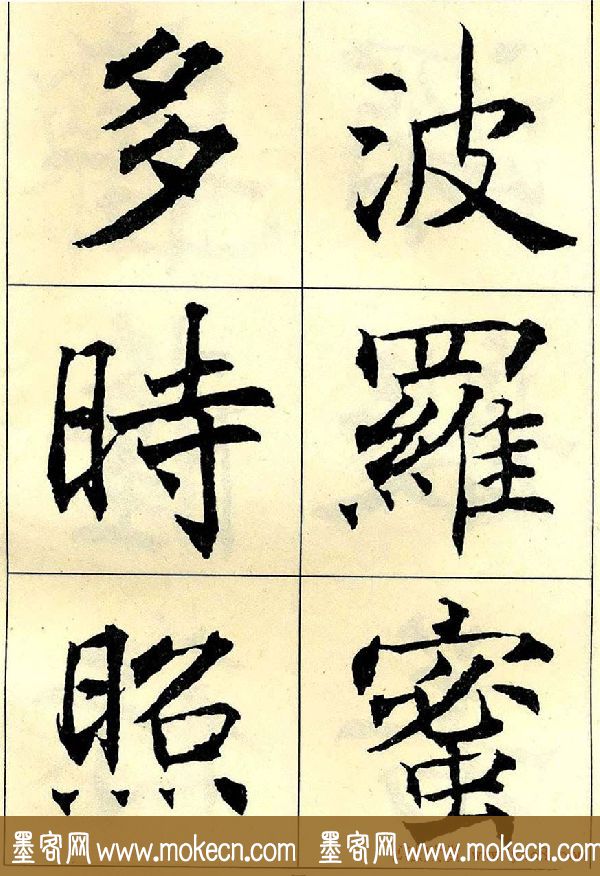 波羅蜜
多時照
墨客网 www.mokecn.com 墨客网 www.mokecn.com